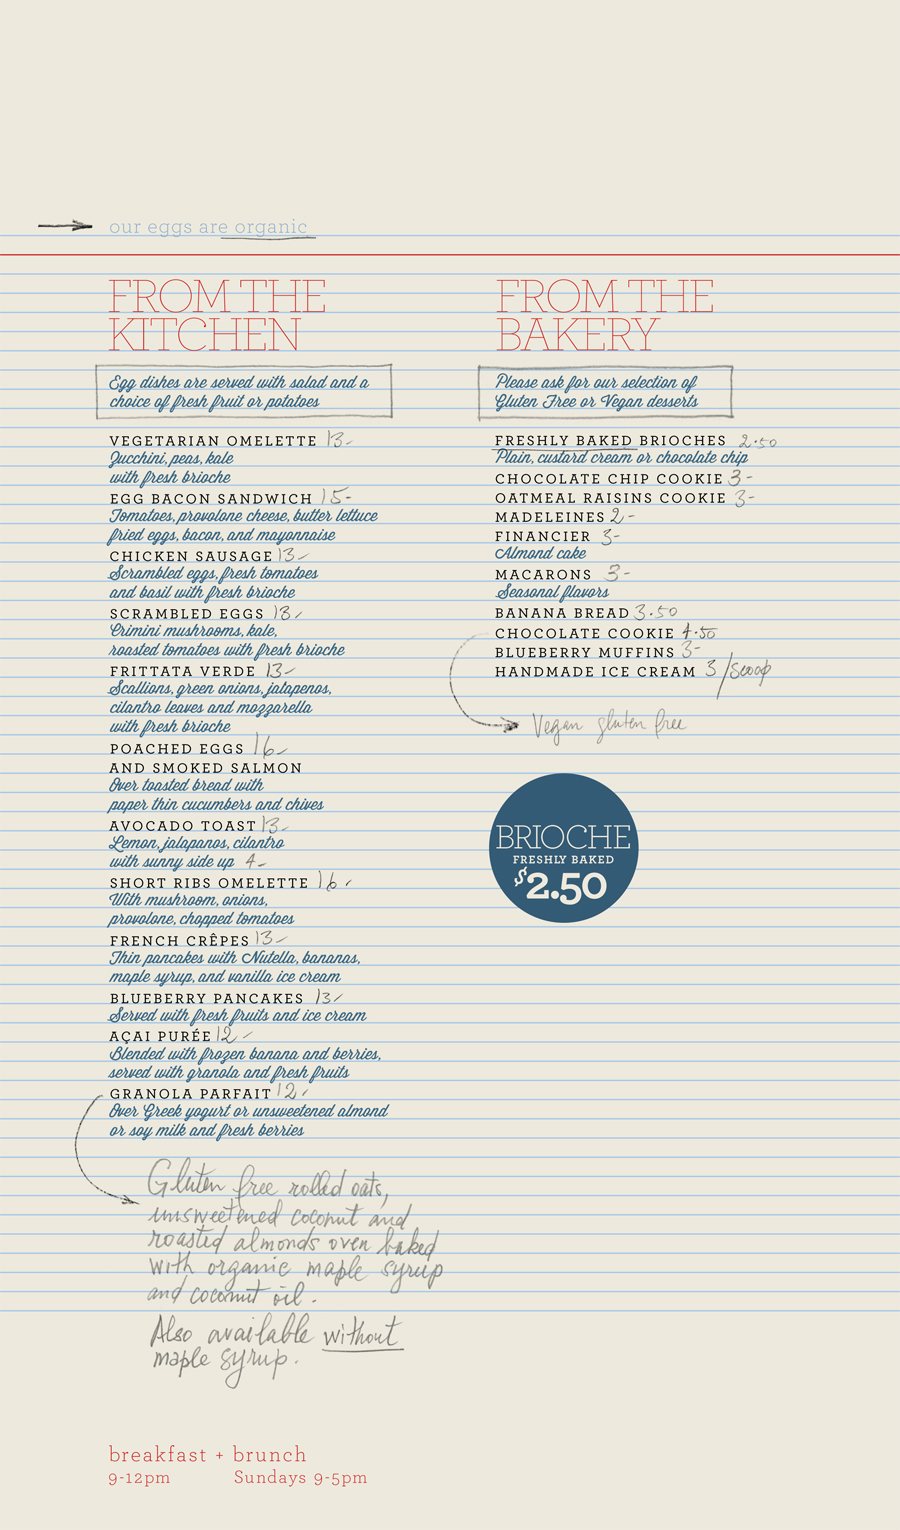 our eggs are organic
FROM THE
KITCHEN
Egg dishes are served with salad and a
choice of fresh fruit or potatoes
VEGETARIAN OMELETTE 13-
Zucchini, peas, kale
with fresh brioche
EGG BACON SANDWICH 15-
Tomatoes, provolone cheese, butter lettuce
fried eggs, bacon, and mayonnaise
CHICKEN SAUSAGE 13-
Scrambled eggs, fresh tomatoes
and basil with fresh brioche
SCRAMBLED EGGS 13-
Crimini mushrooms, kale,
roasted tomatoes with fresh brioche
FRITTATA VERDE 13-
Scallions, green onions, jalapenos,
cilantro leaves and mozzarella
with fresh brioche
POACHED EGGS 16-
AND SMOKED SALMON
Over toasted bread with
paper thin cucumbers and chives
AVOCADO TOAST 13-
Lemon, jalapanos, cilantro
with sunny side up 4-
SHORT RIBS OMELETTE 16-
With mushroom, onions,
provolone, chopped tomatoes
FRENCH CRÊPES 13-
Thin pancakes with Nutella, bananas,
maple syrup, and vanilla ice cream
BLUEBERRY PANCAKES 13-
Served with fresh fruits and ice cream
AÇAI PURÉE 12-
Blended with frozen banana and berries,
served with granola and fresh fruits
GRANOLA PARFAIT 12-
Over Greek yogurt or unsweetened almond
or soy milk and fresh berries
Gluten free rolled oats,
unsweetened coconut and
roasted almonds oven baked
with organic maple syrup
and coconut oil.
Also available without
maple syrup.
FROM THE
BAKERY
Please ask for our selection of
Gluten Free or Vegan desserts
FRESHLY BAKED BRIOCHES 2.50
Plain, custard cream or chocolate chip
CHOCOLATE CHIP COOKIE 3-
OATMEAL RAISINS COOKIE 3-
MADELEINES 2-
FINANCIER 3-
Almond cake
MACARONS 3-
Seasonal flavors
BANANA BREAD 3.50
CHOCOLATE COOKIE 4.50
BLUEBERRY MUFFINS 3-
HANDMADE ICE CREAM 3/scoop
Vegan gluten free
BRIOCHE
FRESHLY BAKED
$2.50
breakfast + brunch
9-12pm Sundays 9-5pm